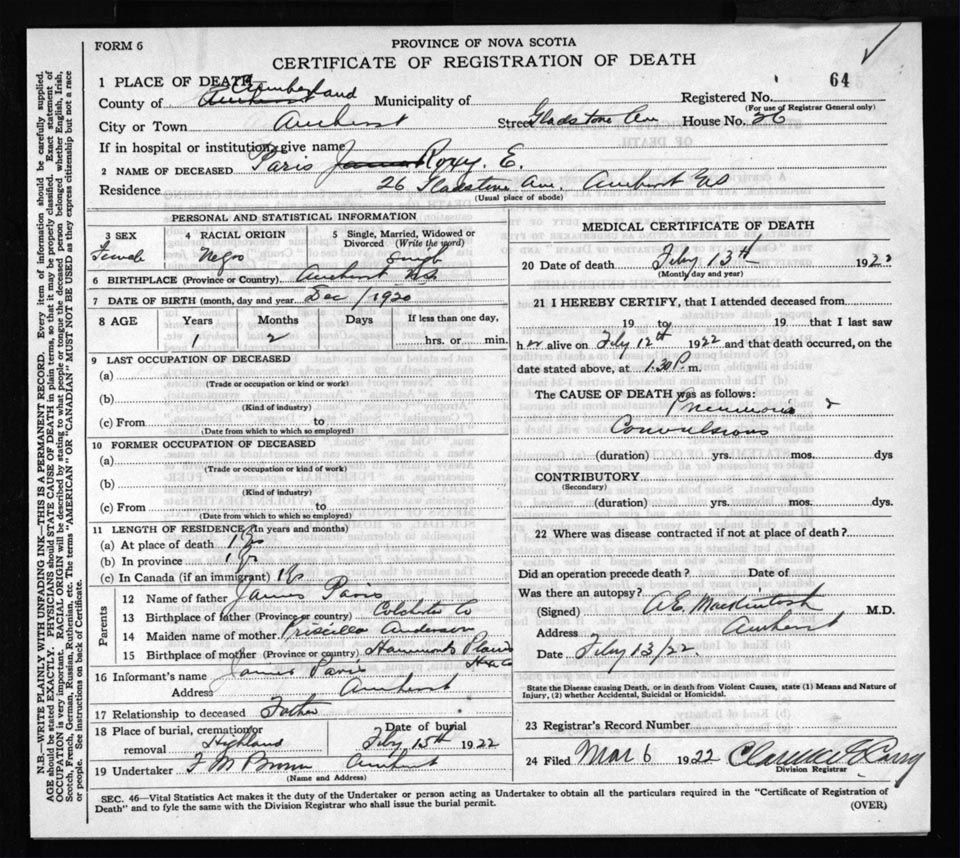 FORM 6
PROVINCE OF NOVA SCOTIA
CERTIFICATE OF REGISTRATION OF DEATH
64
1 PLACE OF DEATH
County of Amherst Cumberland Municipality of
Registered No.
(For use of Registrar General only)
City or Town Amherst Street Gladstone Ave House No. 26
If in hospital or institution, give name
2 NAME OF DECEASED Paris James Roxy. E.
Residence 26 Gladstone Ave. Amherst NS
(Usual place of abode)
PERSONAL AND STATISTICAL INFORMATION
3 SEX
Female
4 RACIAL ORIGIN
Negro
5 Single, Married, Widowed or Divorced (Write the word)
Single
6 BIRTHPLACE (Province or Country) Amherst N.S.
7 DATE OF BIRTH (month, day and year) Dec / 1920
8 AGE Years Months Days If less than one day,
1 2 hrs. or min.
9 LAST OCCUPATION OF DECEASED
(a)
(Trade or occupation or kind or work)
(b)
(Kind of industry)
(c) From to
(Date from which to which so employed)
10 FORMER OCCUPATION OF DECEASED
(a)
(Trade or occupation or kind of work)
(b)
(Kind of industry)
(c) From to
(Date from which to which so employed)
11 LENGTH OF RESIDENCE (In years and months)
(a) At place of death 1 yr
(b) In province 1 yr
(c) In Canada (if an immigrant) 1 yr
Parents
12 Name of father James Paris
13 Birthplace of father (Province or country) Colchester Co
14 Maiden name of mother Priscilla Anderson
15 Birthplace of mother (Province or country) Hammonds Plains
Hx Co
16 Informant's name James Paris
Address Amherst
17 Relationship to deceased Father
18 Place of burial, cremation or removal Highland
Date of burial
Feby 15th 1922
19 Undertaker F M Brown Amherst
(Name and Address)
MEDICAL CERTIFICATE OF DEATH
20 Date of death Feby 13th 1922
(Month, day and year)
21 I HEREBY CERTIFY, that I attended deceased from
19 to 19 that I last saw
h er alive on Feby 12th 1922 and that death occurred, on the
date stated above, at 1.30 P. m.
The CAUSE OF DEATH was as follows:
Pneumonia &
Convulsions
(duration) yrs. mos. dys
CONTRIBUTORY
(Secondary)
(duration) yrs. mos. dys.
22 Where was disease contracted if not at place of death?
Did an operation precede death? Date of
Was there an autopsy?
(Signed) A.E. Mackintosh M.D.
Address Amherst
Date Feby 13/22.
State the Disease causing Death, or in death from Violent Causes, state (1) Means and Nature of
Injury, (2) whether Accidental, Suicidal or Homicidal.
23 Registrar's Record Number
24 Filed Mar 6 1922
Division Registrar
SEC. 46—Vital Statistics Act makes it the duty of the Undertaker or person acting as Undertaker to obtain all the particulars required in the "Certificate of Registration of
Death" and to fyle the same with the Division Registrar who shall issue the burial permit.
(OVER)
N.B.—WRITE PLAINLY WITH UNFADING INK—THIS IS A PERMANENT RECORD. Every item of information should be carefully supplied.
AGE should be stated EXACTLY. PHYSICIANS should STATE CAUSE OF DEATH in plain terms, so that it may be properly classified. Exact statement of
OCCUPATION is very important. RACIAL ORIGIN will be described by stating to what people or tongue the deceased person belonged whether English, Irish,
Scotch, French, German, Russian, Ruthenian, etc. The terms "AMERICAN" OR "CANADIAN" MUST NOT BE USED as they express citizenship but not a race
or people. See instructions on back of Certificate.